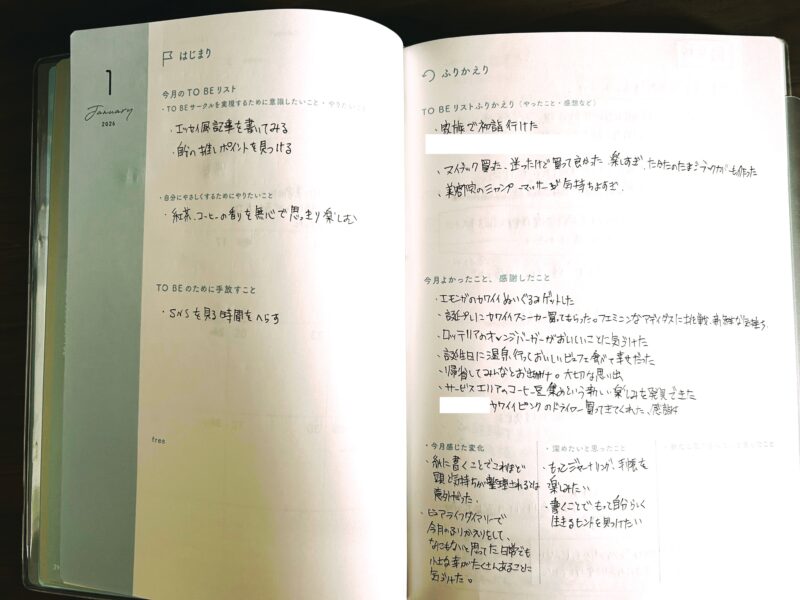 1
January
2026
はじまり
今月のTO BEリスト
・TO BEサークルを実現するために意識したいこと・やりたいこと
・エッセイ風記事を書いてみる
・自分の推しポイントを見つける
・自分にやさしくするためにやりたいこと
・紅茶、コーヒーの香りを無心で思っきり楽しむ
TO BEのために手放すこと
・SNSを見る時間をへらす
free
ふりかえり
TO BEリストふりかえり（やったこと・感想など）
・家族で初詣行けた
・マイブック買った、迷ったけど買って良かった 楽しすぎ、
・美容院のシャンプーマッサージ気持ちよすぎ、
今月よかったこと、感謝したこと
・エモンガのカワイイぬいぐるみゲットした
・誕プレにカワイイスニーカー買ってもらった。フェミニンなアディダスに挑戦、新鮮な
・ロッテリアのオレンジバーガーがおいしいことに気づけた
・誕生日に温泉行っておいしいビュッフェ食べて幸せだった
・帰省してみんなとお出かけ。大切な思い出
・サービスエリアのコーヒー豆集めという新しい楽しみを発見できた
カワイイピンクのドライヤー買ってきてくれた、感謝
・今月感じた変化
・紙に書くことでこれほど
頭と気持ちが整理されるとは
意外だった。
・ピュアライフダイアリーで
今月のふりかえりをして、
なにもないと思ってた日常でも
小さな幸がたくさんあることに
気づけた。
・深めたいと思ったこと
・もっとジャーナリング、手帳を
楽しみたい
・書くことでもっと自分らしく
生きるヒントを見つけたい